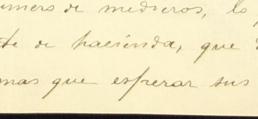 número de medieros, lo
de hacienda, que
mas que esperar sus